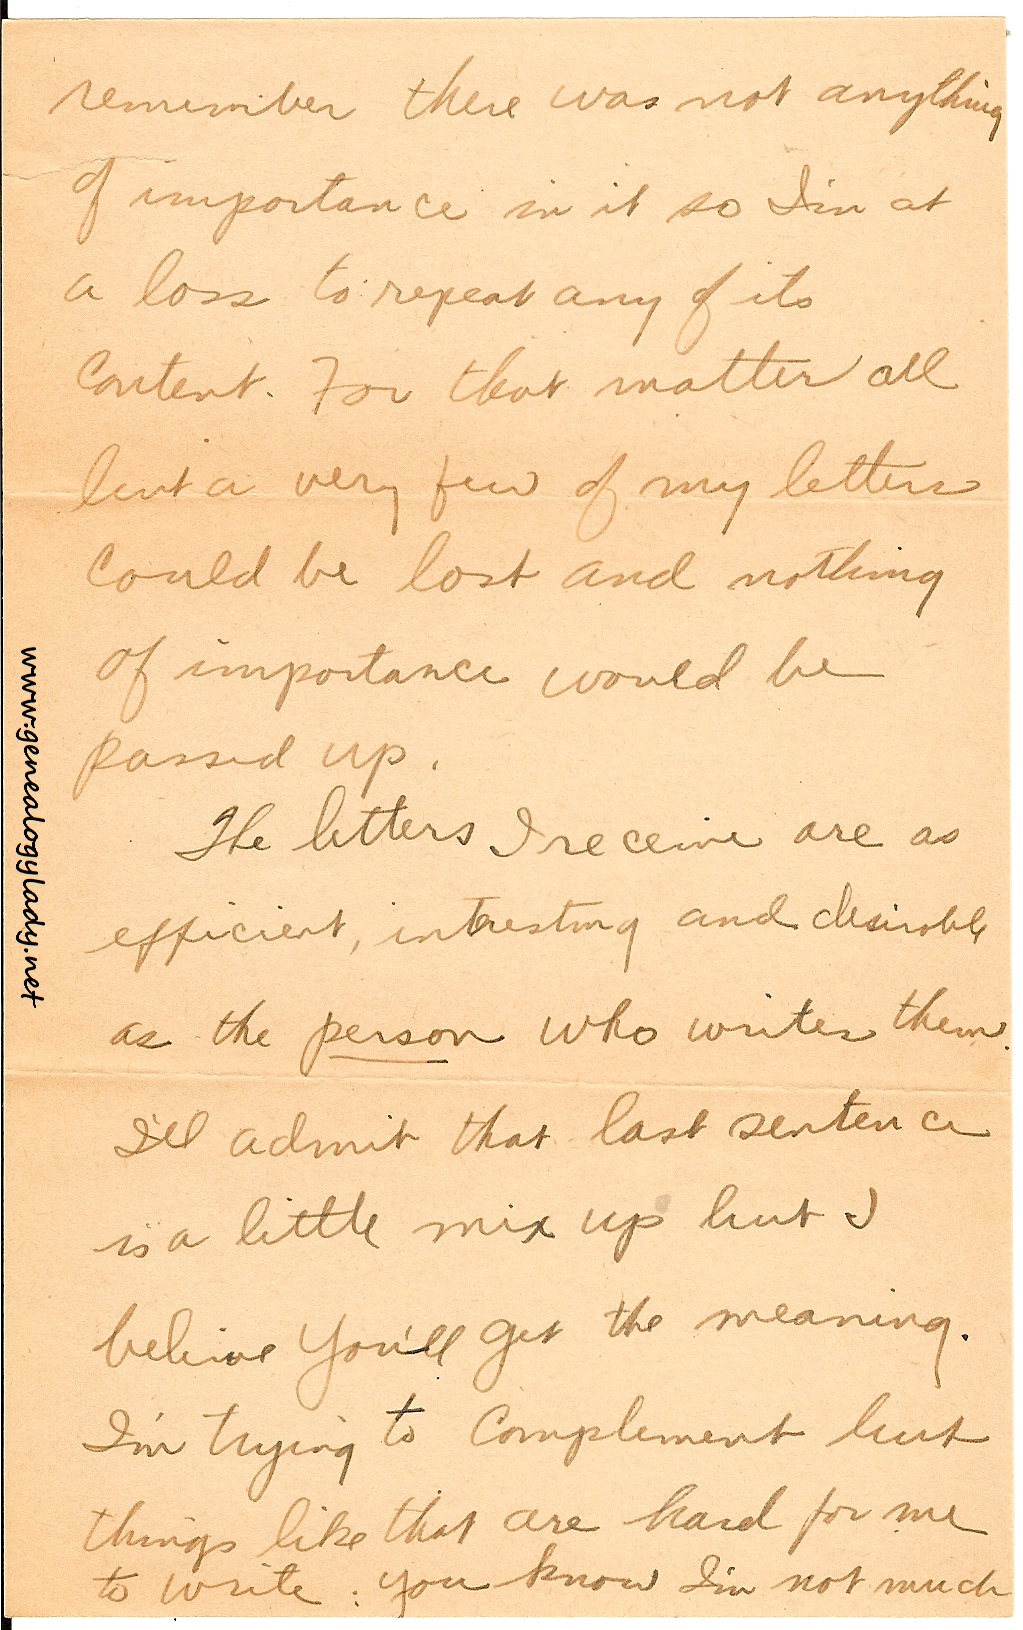 remember there was not anything
of importance in it so I'm at
a loss to repeat any of its
content. For that matter all
but a very few of my letters
could be lost and nothing
of importance would be
passed up.
The letters I receive are as
efficient, intresting and desirable
as the person who writes them.
I'll admit that last sentence
is a little mix up but I
believe you'll get the meaning.
I'm trying to complement but
things like that are hard for me
to write. you know I'm not much
www.genealogylady.net